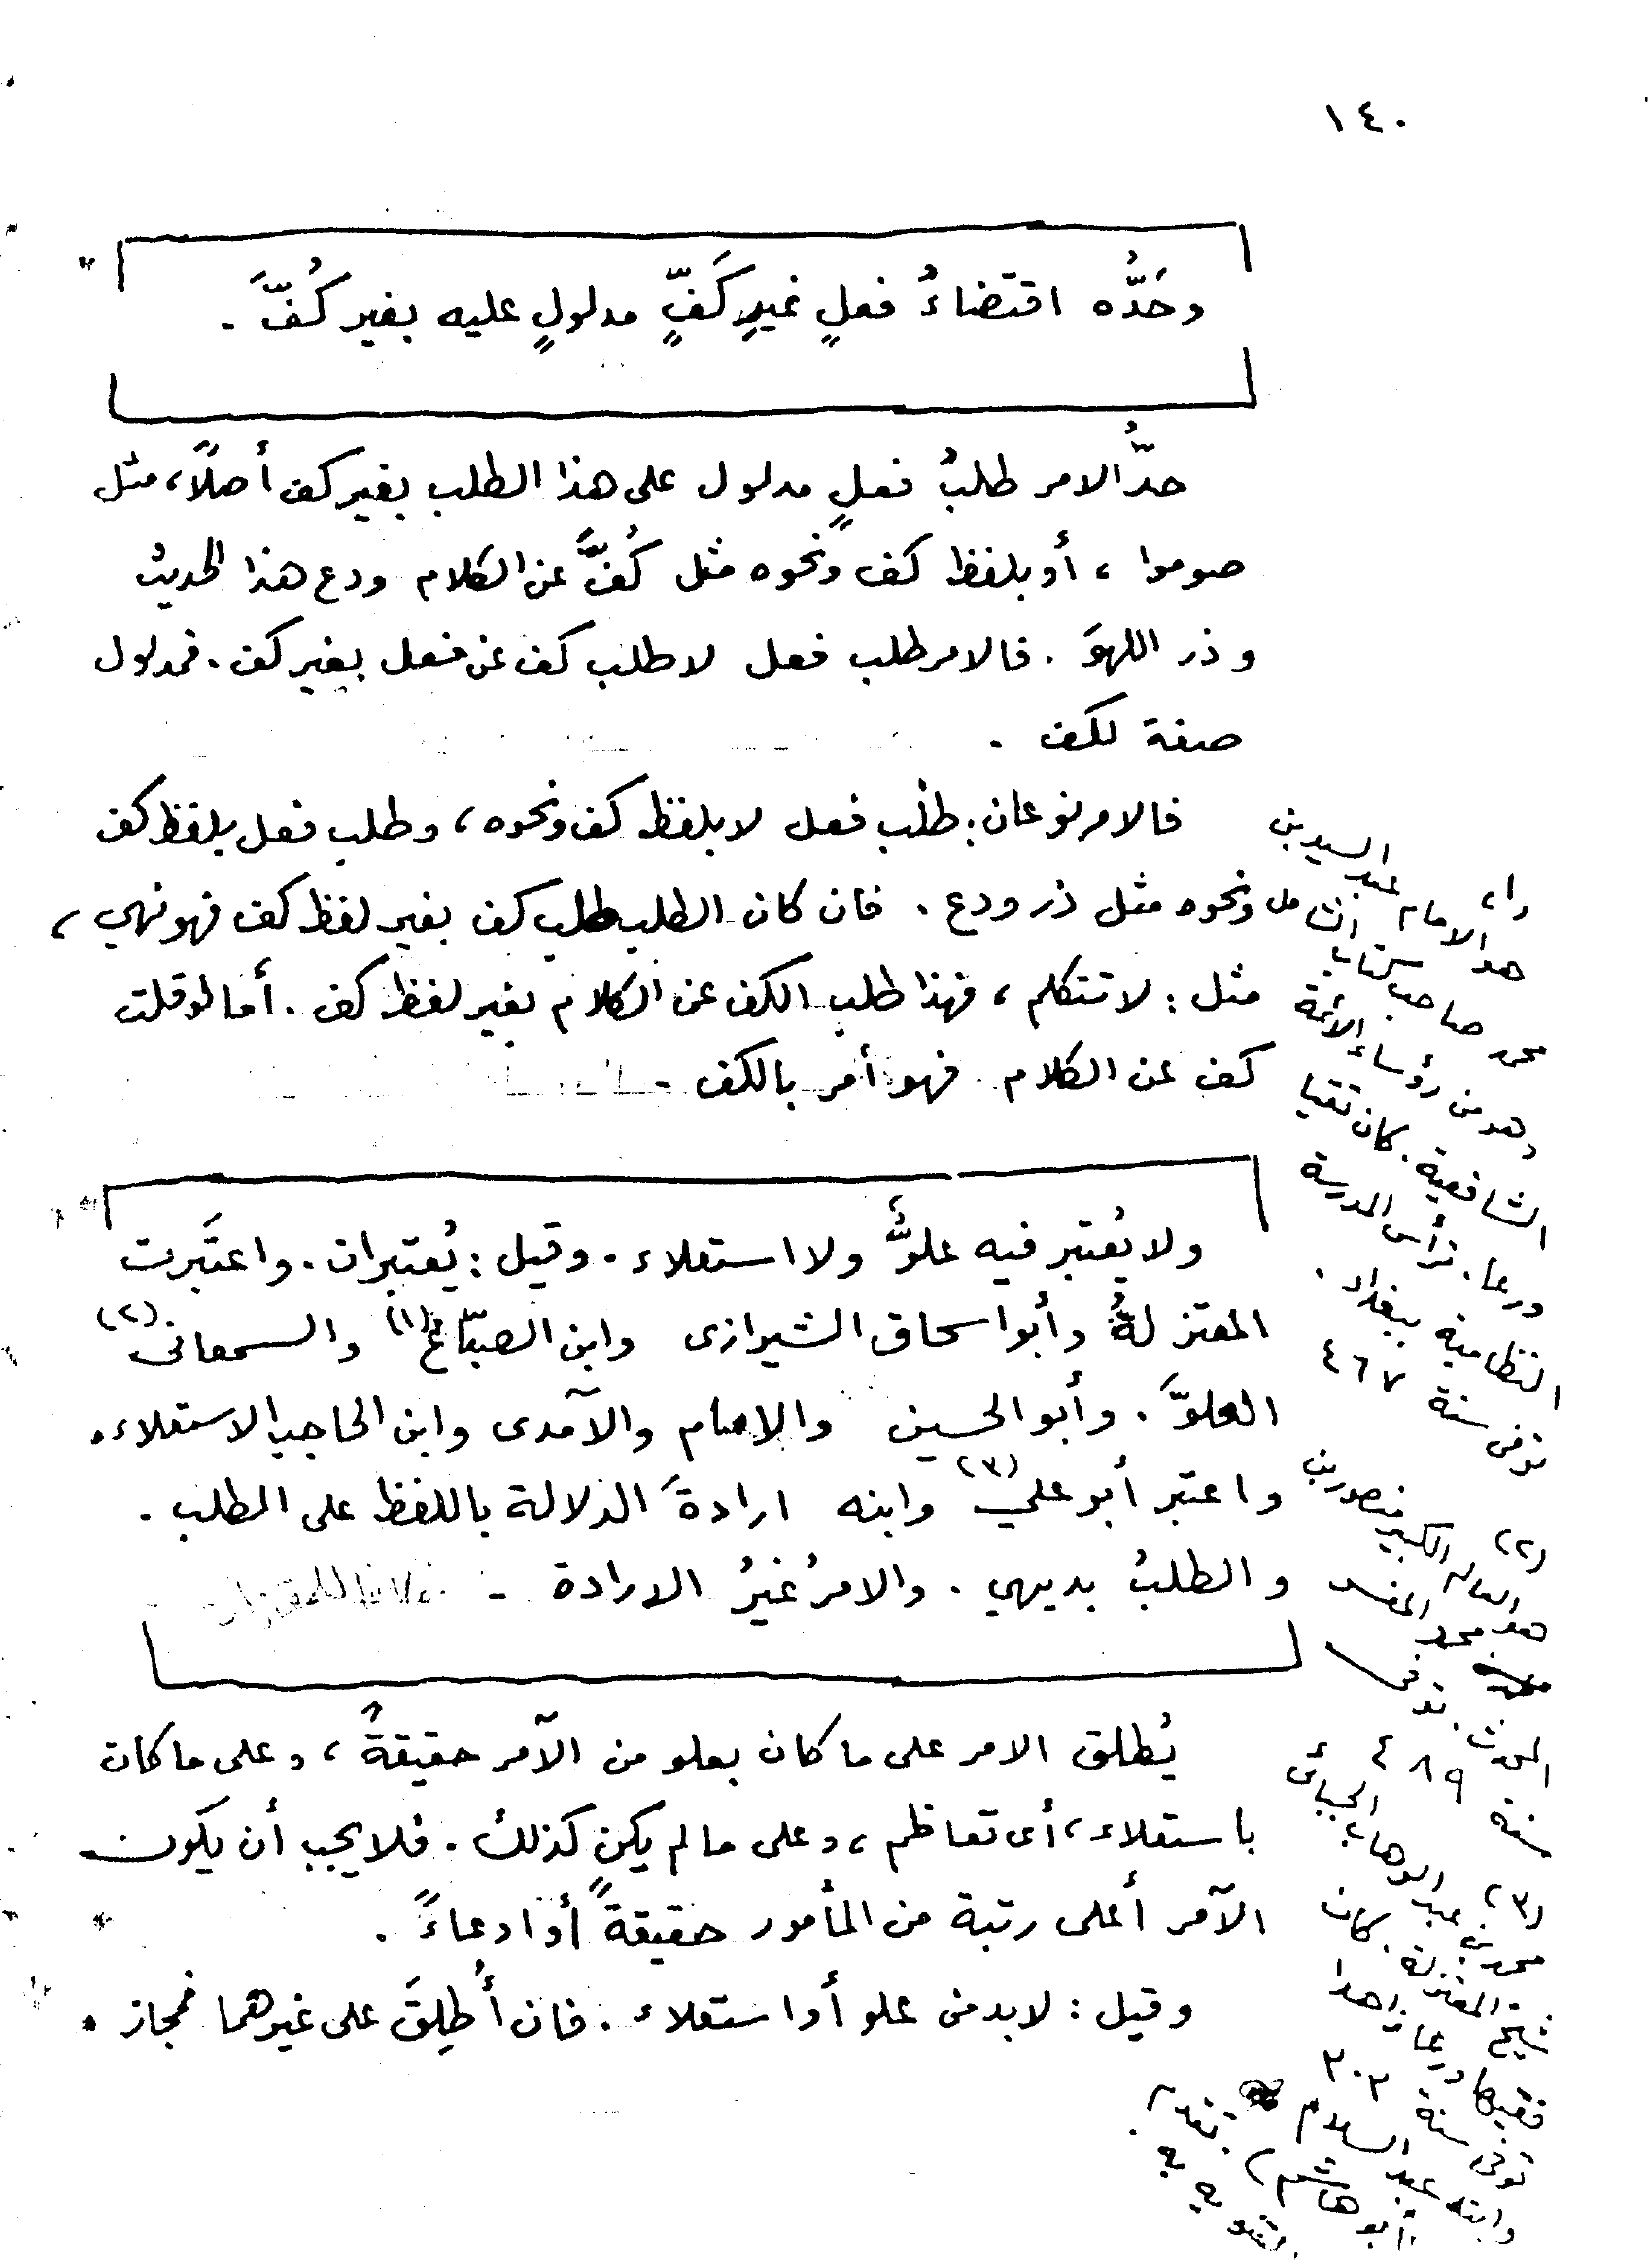 ١٤٠
وحَدُّه اقتضاءُ فعلٍ غيرِ كَفٍّ مدلولٍ عليه بغير كُفَّ .
حدُّ الامر طلبُ فعلٍ مدلول على هذا الطلب بغير كف أصلاً، مثل
صوموا ، أو بلفظ كف ونحوه مثل كُفَّ عن الكلام ودع هذا الحديث
وذر اللهوَ . فالامر طلب فعل لا طلب كف عن فعل بغير كف . فمدلول
صفة لكف .
فالامر نوعان : طلب فعل لا بلفظ كف ونحوه ، وطلب فعل بلفظ كف
ونحوه مثل ذر ودع . فان كان الطلب طلب كف بغير لفظ كف فهو نهي ،
مثل : لا تتكلم ، فهذا طلب الكف عن الكلام بغير لفظ كف . أما لو قلت
كف عن الكلام فهو أمر بالكف .
ولا يُعتبر فيه علوٌّ ولا استعلاء . وقيل : يُعتبران . واعتَبرت
المعتزلةُ وأبو اسحاق الشيرازى وابن الصبّاغ (١) والسمعانى (٢)
العلوَّ . وأبو الحسين والامام والآمدى وابن الحاجب الاستعلاء .
واعتبر أبو علي (٣) وابنه ارادةَ الدلالة باللفظ على الطلب .
والطلبُ بديهي . والامرُ غيرُ الارادة .
يُطلق الامر على ما كان بعلو من الآمر حقيقةً ، وعلى ما كان
باستعلاء ، أى تعاظم ، وعلى ما لم يكن كذلك . فلا يجب أن يكون
الآمر أعلى رتبة من المأمور حقيقةً أو ادعاءً .
وقيل : لابد من علو أو استعلاء . فان أُطلِقَ على غيرهما فمجاز .
(١)
هو الامام عبد السيد بن
محمد صاحب كتاب الشامل
وهو من رؤساء الائمة
الشافعية . كان تقيا
ورعا . ترأس المدرسة
النظامية ببغداد .
توفى سنة ٤٦٧
(٢)
هو العالم الكبير منصور بن
محمد المفسر
المحدث . توفى
سنة ٤٨٩
(٣)
محمد بن عبد الوهاب الجبائى
شيخ المعتزلة . كان
فقيها ورعا زاهدا
توفى سنة ٣٠٣
وابنه عبد السلام
أبو هاشم